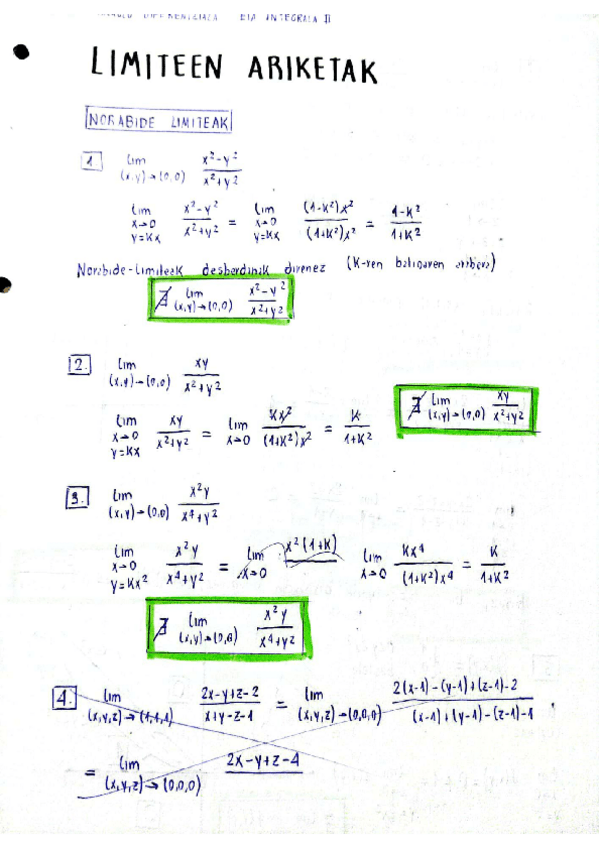 DIFERENTZIALA ETA INTEGRALA II
LIMITEEN ARIKETAK
NORABIDE LIMITEAK
1. lim (x,y)→(0,0) (x²-y²)/(x²+y²)
lim x→0 y=Kx (x²-y²)/(x²+y²) = lim x→0 y=Kx ((1-K²)x²)/((1+K²)x²) = (1-K²)/(1+K²)
Norabide-limiteak desberdinak direnez (K-ren balioaren arabera)
∄ lim (x,y)→(0,0) (x²-y²)/(x²+y²)
2. lim (x,y)→(0,0) xy/(x²+y²)
lim x→0 y=Kx xy/(x²+y²) = lim x→0 Kx²/((1+K²)x²) = K/(1+K²)
∄ lim (x,y)→(0,0) xy/(x²+y²)
3. lim (x,y)→(0,0) x²y/(x⁴+y²)
lim x→0 y=Kx² x²y/(x⁴+y²) = lim x→0 x²(1+K) lim x→0 Kx⁴/((1+K²)x⁴) = K/(1+K²)
∄ lim (x,y)→(0,0) x²y/(x⁴+y²)
4. lim (x,y,z)→(1,1,1) (2x-y+z-2)/(x+y-z-1) = lim (x,y,z)→(0,0,0) (2(x-1)-(y-1)+(z-1)-2)/((x-1)+(y-1)-(z-1)-1)
= lim (x,y,z)→(0,0,0) 2x-y+z-4